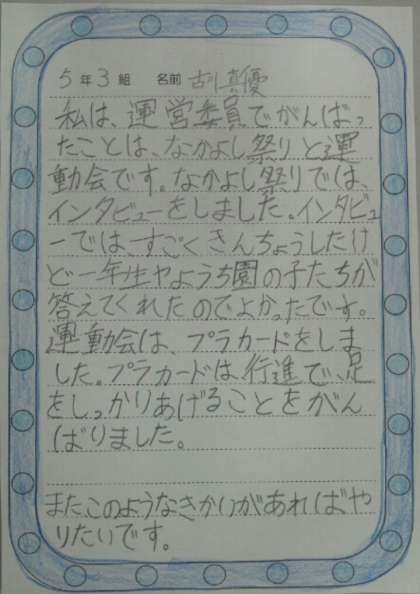 5年3組 名前 真優
私は、運営委員でがんばっ
たことは、なかよし祭りと運
動会です。なかよし祭りでは、
インタビューをしました。インタビュ
ーでは、すごくきんちょうしたけ
ど一年生やようち園の子たちが
答えてくれたのでよかったです。
運動会は、プラカードをしま
した。プラカードは、行進で、足
をしっかりあげることをがん
ばりました。
またこのようなきかいがあればや
りたいです。